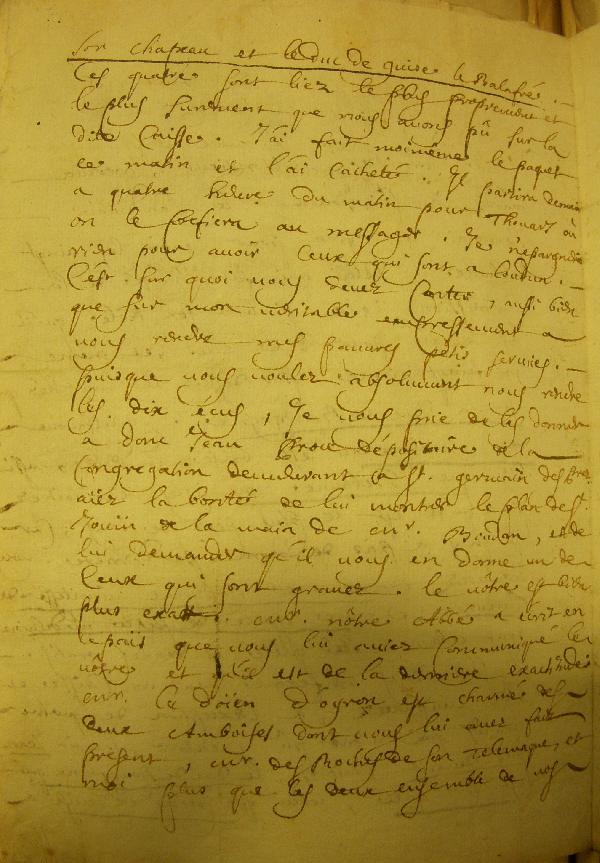 son chapeau et le duc de guise le Balafré. —
Ces quatre sont liez le plus proprement et
le plus surement que nous avons pû sur la
dite Caisse. J'ai fait moimême le paquet
ce matin et l'ai cacheté. Il partira demain
a quatre heures du matin pour Thouars où
on le Confiera au messager. Je n'epargnerai
rien pour avoir ceux qui sont a Loudun. —
C'est sur quoi vous devez Conter, aussi bien
que sur mon veritable empressement a
vous rendre mes pauvres petis services. —
puisque vous voulez absolument nous rendre
les dix écus, Je vous prie de les donner
a dom Jean depositaire de la
Congregation demeurant a St. germain des Prez
aiez la bonté de lui montrer le plan de St.
Jouin de la main de mr. , et de
lui demander qu'il vous en donne un de
ceux qui sont gravez. le vôtre est bien
plus exact. mr. nôtre Abbé a écrit en
ce païs que vous lui aviez Communiqué le
vôtre et qu'il est de la derniere exactitude
mr. le doïen d'oyron est charmé des
deux Amboises dont vous lui avez fait
present, mr. des Roches de son Telemaque, et
moi plus que les deux ensemble de vos